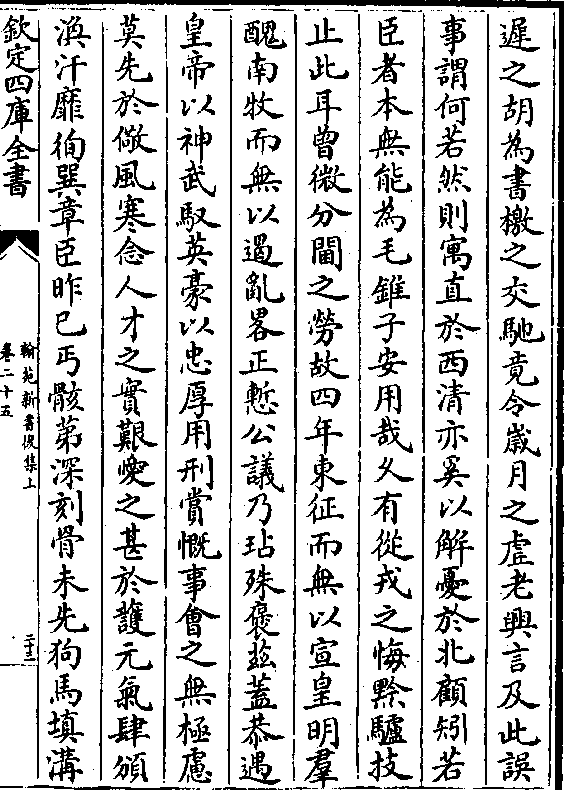 遲之胡為書檄之交馳竟令歲月之虛老興言及此誤
事謂何若然則寓直於西清亦奚以解憂於北顧矧若
臣者本無能為毛錐子安用哉久有從戎之悔黔驢技
止此耳曾微分閫之勞故四年東征而無以宣皇明羣
醜南牧而無以遏亂畧正慙公議乃玷殊褒玆蓋恭遇
皇帝以神武馭英豪以忠厚用刑賞慨事會之無極慮
莫先於儆風寒念人才之實艱愛之甚於護元氣肆頒
渙汗靡徇巽章臣昨已丐骸苐深刻骨未先狗馬填溝
欽定四庫全書
翰苑新書後集上
卷二十五
二十三